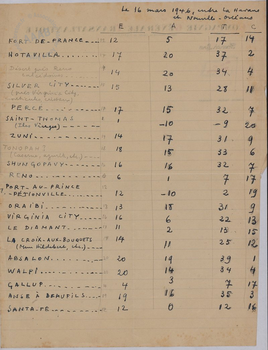 Le 16 mars 1946, entre la Havane
et Nouvelle-Orléans
B A T C
FORT-DE-FRANCE 12 5 17 14
HOTAVILLA 17 20 37 2
14 20 34 4
SILVER CITY 15 13 28 18
PERCE 17 15 32 7
SAINT-THOMAS 1 -10 -9 20
ZUNI 14 17 31 9
18 15 33 6
SHUNGOPAVY 16 16 32 7
RENO 6 1 7 17
PORT-AU-PRINCE
PÉTIONVILLE 12 -10 2 19
ORAIBI 13 18 31 9
VIRGINIA CITY 16 6 22 13
LE DIAMANT 11 2 13 15
LA CROIX-AUX-BOUQUETS 14 11 25 12
ABSALON 20 19 39 1
WALPI 20 14 34 4
GALLUP 4 3 7 17
ANSE À 19 16 35 3
SANTA-FE 12 0 12 16